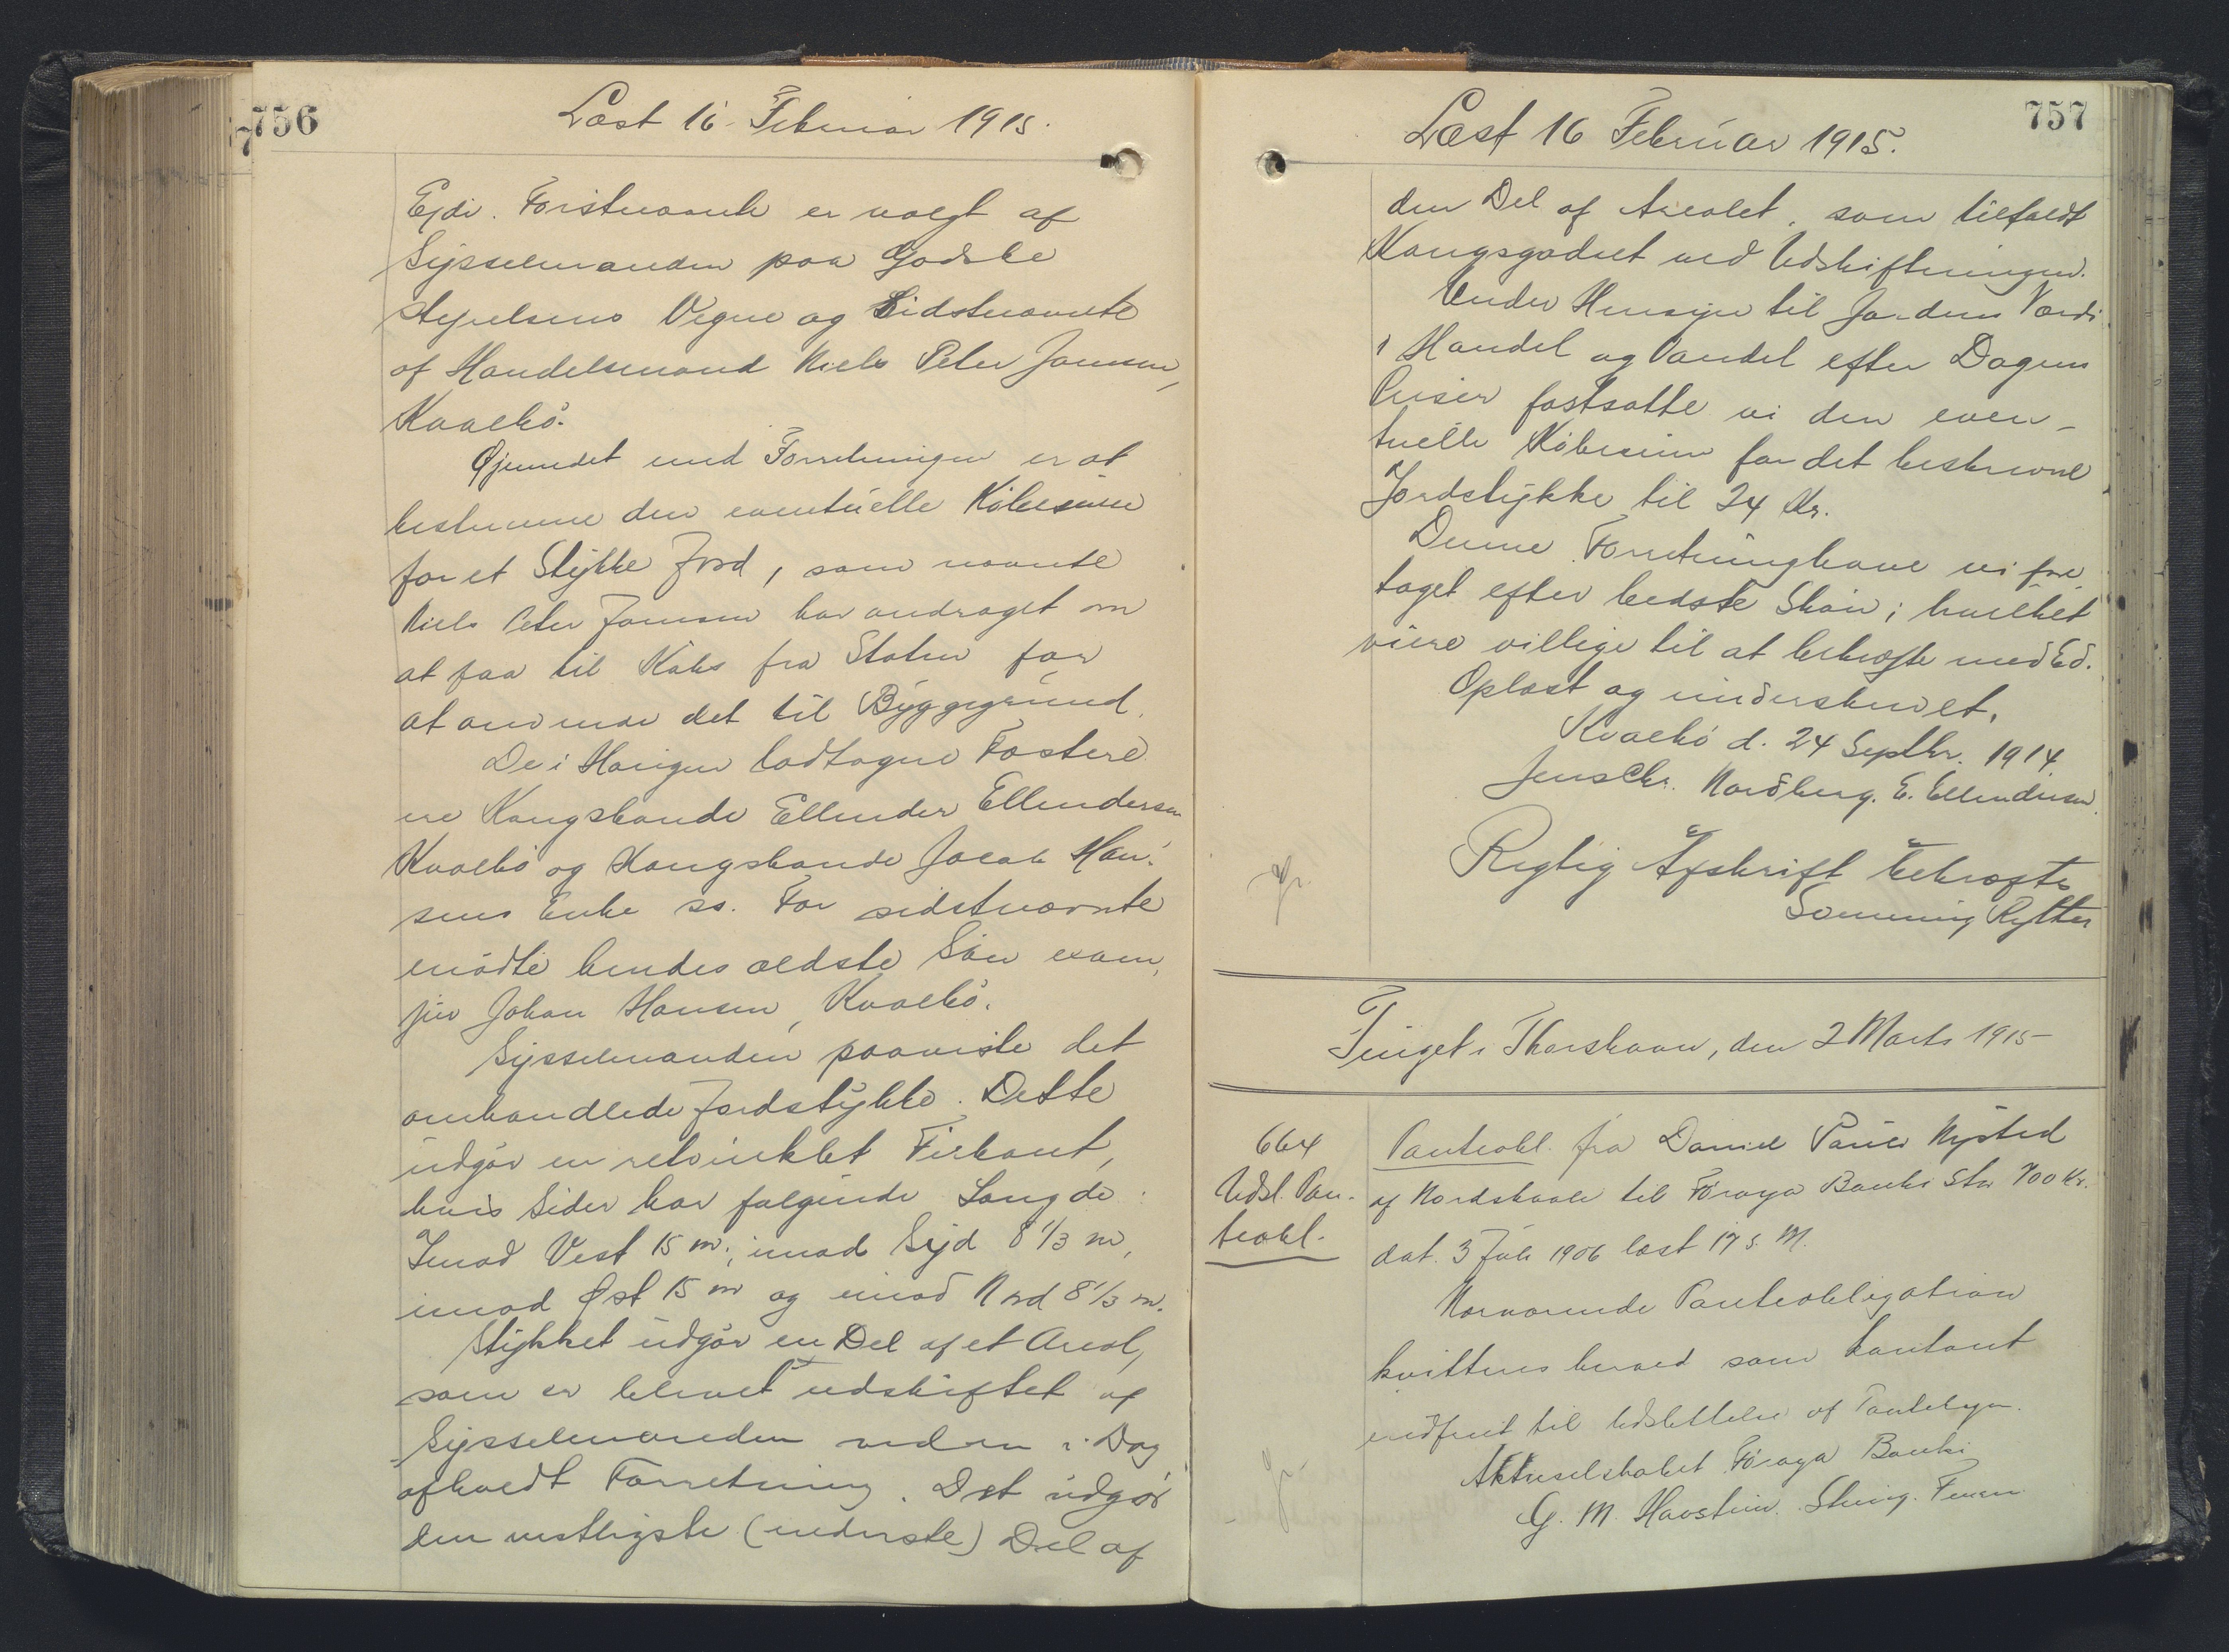 756
Læst 16 Februar 1915.
Ejdi. Førstnævnte er valgt af
Sysselmanden paa Godsbe
styrelsens Vegne og Sidstnævnte
af Handelsmand Niels Peter Joensen,
Kvalbö.
Öjemedet med Forretningen er at
bestemme den eventuelle Købesum
for et Stykke Jord, som nævnte
Niels Peter Joensen har andraget om
at faa til Købs fra Staten for
at anvende det til Byggegrund.
De i Haugen lodtagne Fæstere
ere Kongsbonde Ellender Ellendersen
Kvalbö og Kongsbonde Jacob Han-
sens Enke ss. For sidstnævnte
mödte hendes ældste Sön exam.
jur Johan Hansen, Kvalbö.
Sysselmanden paaviste det
omhandlede Jordstykke. Dette
udgör en retvinklet Firkant,
hvis Sider har fölgende Længde:
Imod Vest 15 m., imod Syd 8 1/3 m,
imod Øst 15 m og imod Nord 8 1/3 m.
Stykket udgör en Del af et Areal,
som er blevet udskiftet af
Sysselmanden ved en i Dag
afholdt Forretning. Det udgör
den vestligste (nederste) Del af
757
Læst 16 Februar 1915.
den Del af Arealet, som tilfaldt
Kongsgodset ved Udskiftningen.
Under Hensyn til Jordens Værdi
i Handel og Vandel efter Dagens
Priser fastsatte vi den even-
tuelle Købesum for det beskrevne
Jordstykke til 24 Kr.
Denne Forretning have vi fore
taget efter bedste Skön; hvilket
vi ere villige til at bekræfte med Ed.
Oplæst og underskrevet.
Kvalbö d. 24 Septbr. 1914.
Jens Chr. Nordberg. E. Ellendersen
Rigtig Afskrift bekræfter
Rytter
Tinget i Thorshavn, den 2 Marts 1915
664
Udsl. Pan-
teobl.
Panteobl. fra Daniel Pauli Nysted
af Nordskaale til Föroya Banki Stor 700 Kr.
dat. 3 Juli 1906 læst 17 s. M.
Nærværende Panteobligation
kvitteres herved som kontant
indfriet til Udslettelse af Pantebogen.
Aktieselskabet Föroya Banki
G. M. Havsteen.